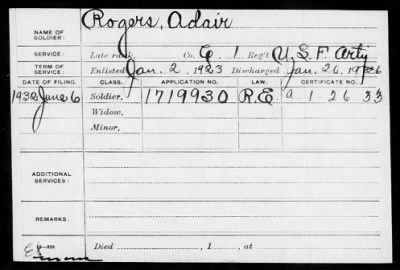 Rogers, Adair
NAME OF SOLDIER:
SERVICE: Late rank, Co. G, 1 Reg't U.S.F. Arty
TERM OF SERVICE: Enlisted Jan. 2, 1923 Discharged Jan. 26, 19
DATE OF FILING. CLASS. APPLICATION NO. LAW. CERTIFICATE NO.
1932 June 6 Soldier, 1719930 R.E. a-1-26-33
Widow,
Minor,
ADDITIONAL SERVICES:
REMARKS:
Died , 1 , at